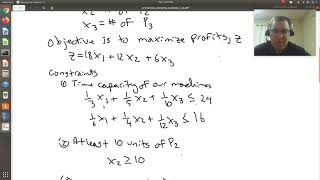 x₃ = # of P₃
Objective Is to maximize Profits, Z
Z = 18x₁ + 12x₂ + 6x₃
Constraints
(1) Time capacity of our machines
1/3 x₁ + 1/5 x₂ + 1/6 x₃ ≤ 24
1/6 x₁ + 1/4 x₂ + 1/12 x₃ ≤ 16
(2) At least 10 units of P₂
x₂ ≥ 10